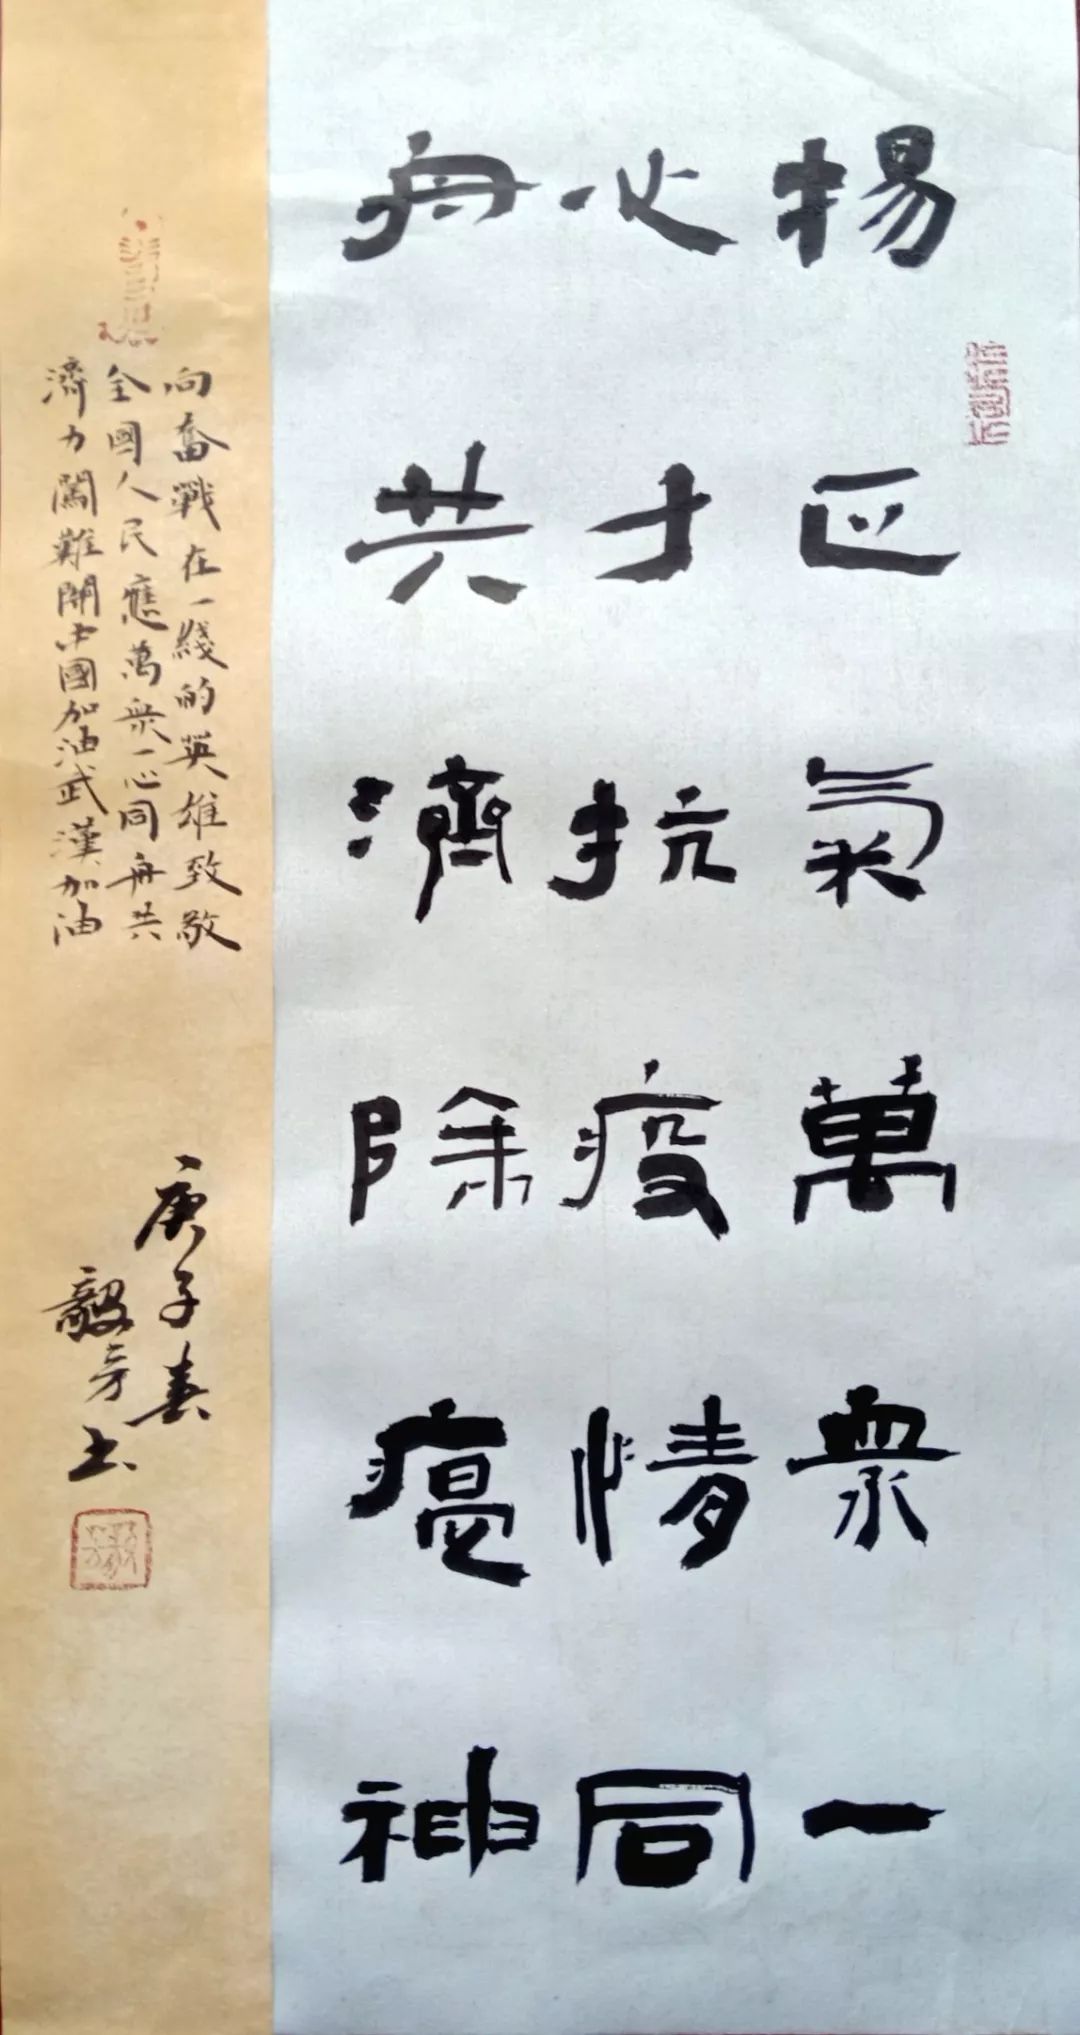 揚正氣萬衆一
心才抗疫情同
舟共濟除瘟神
向奮戰在一綫的英雄致敬
全國人民應萬衆一心同舟共
濟力闖難關中國加油武漢加油
庚子春
毅芳书